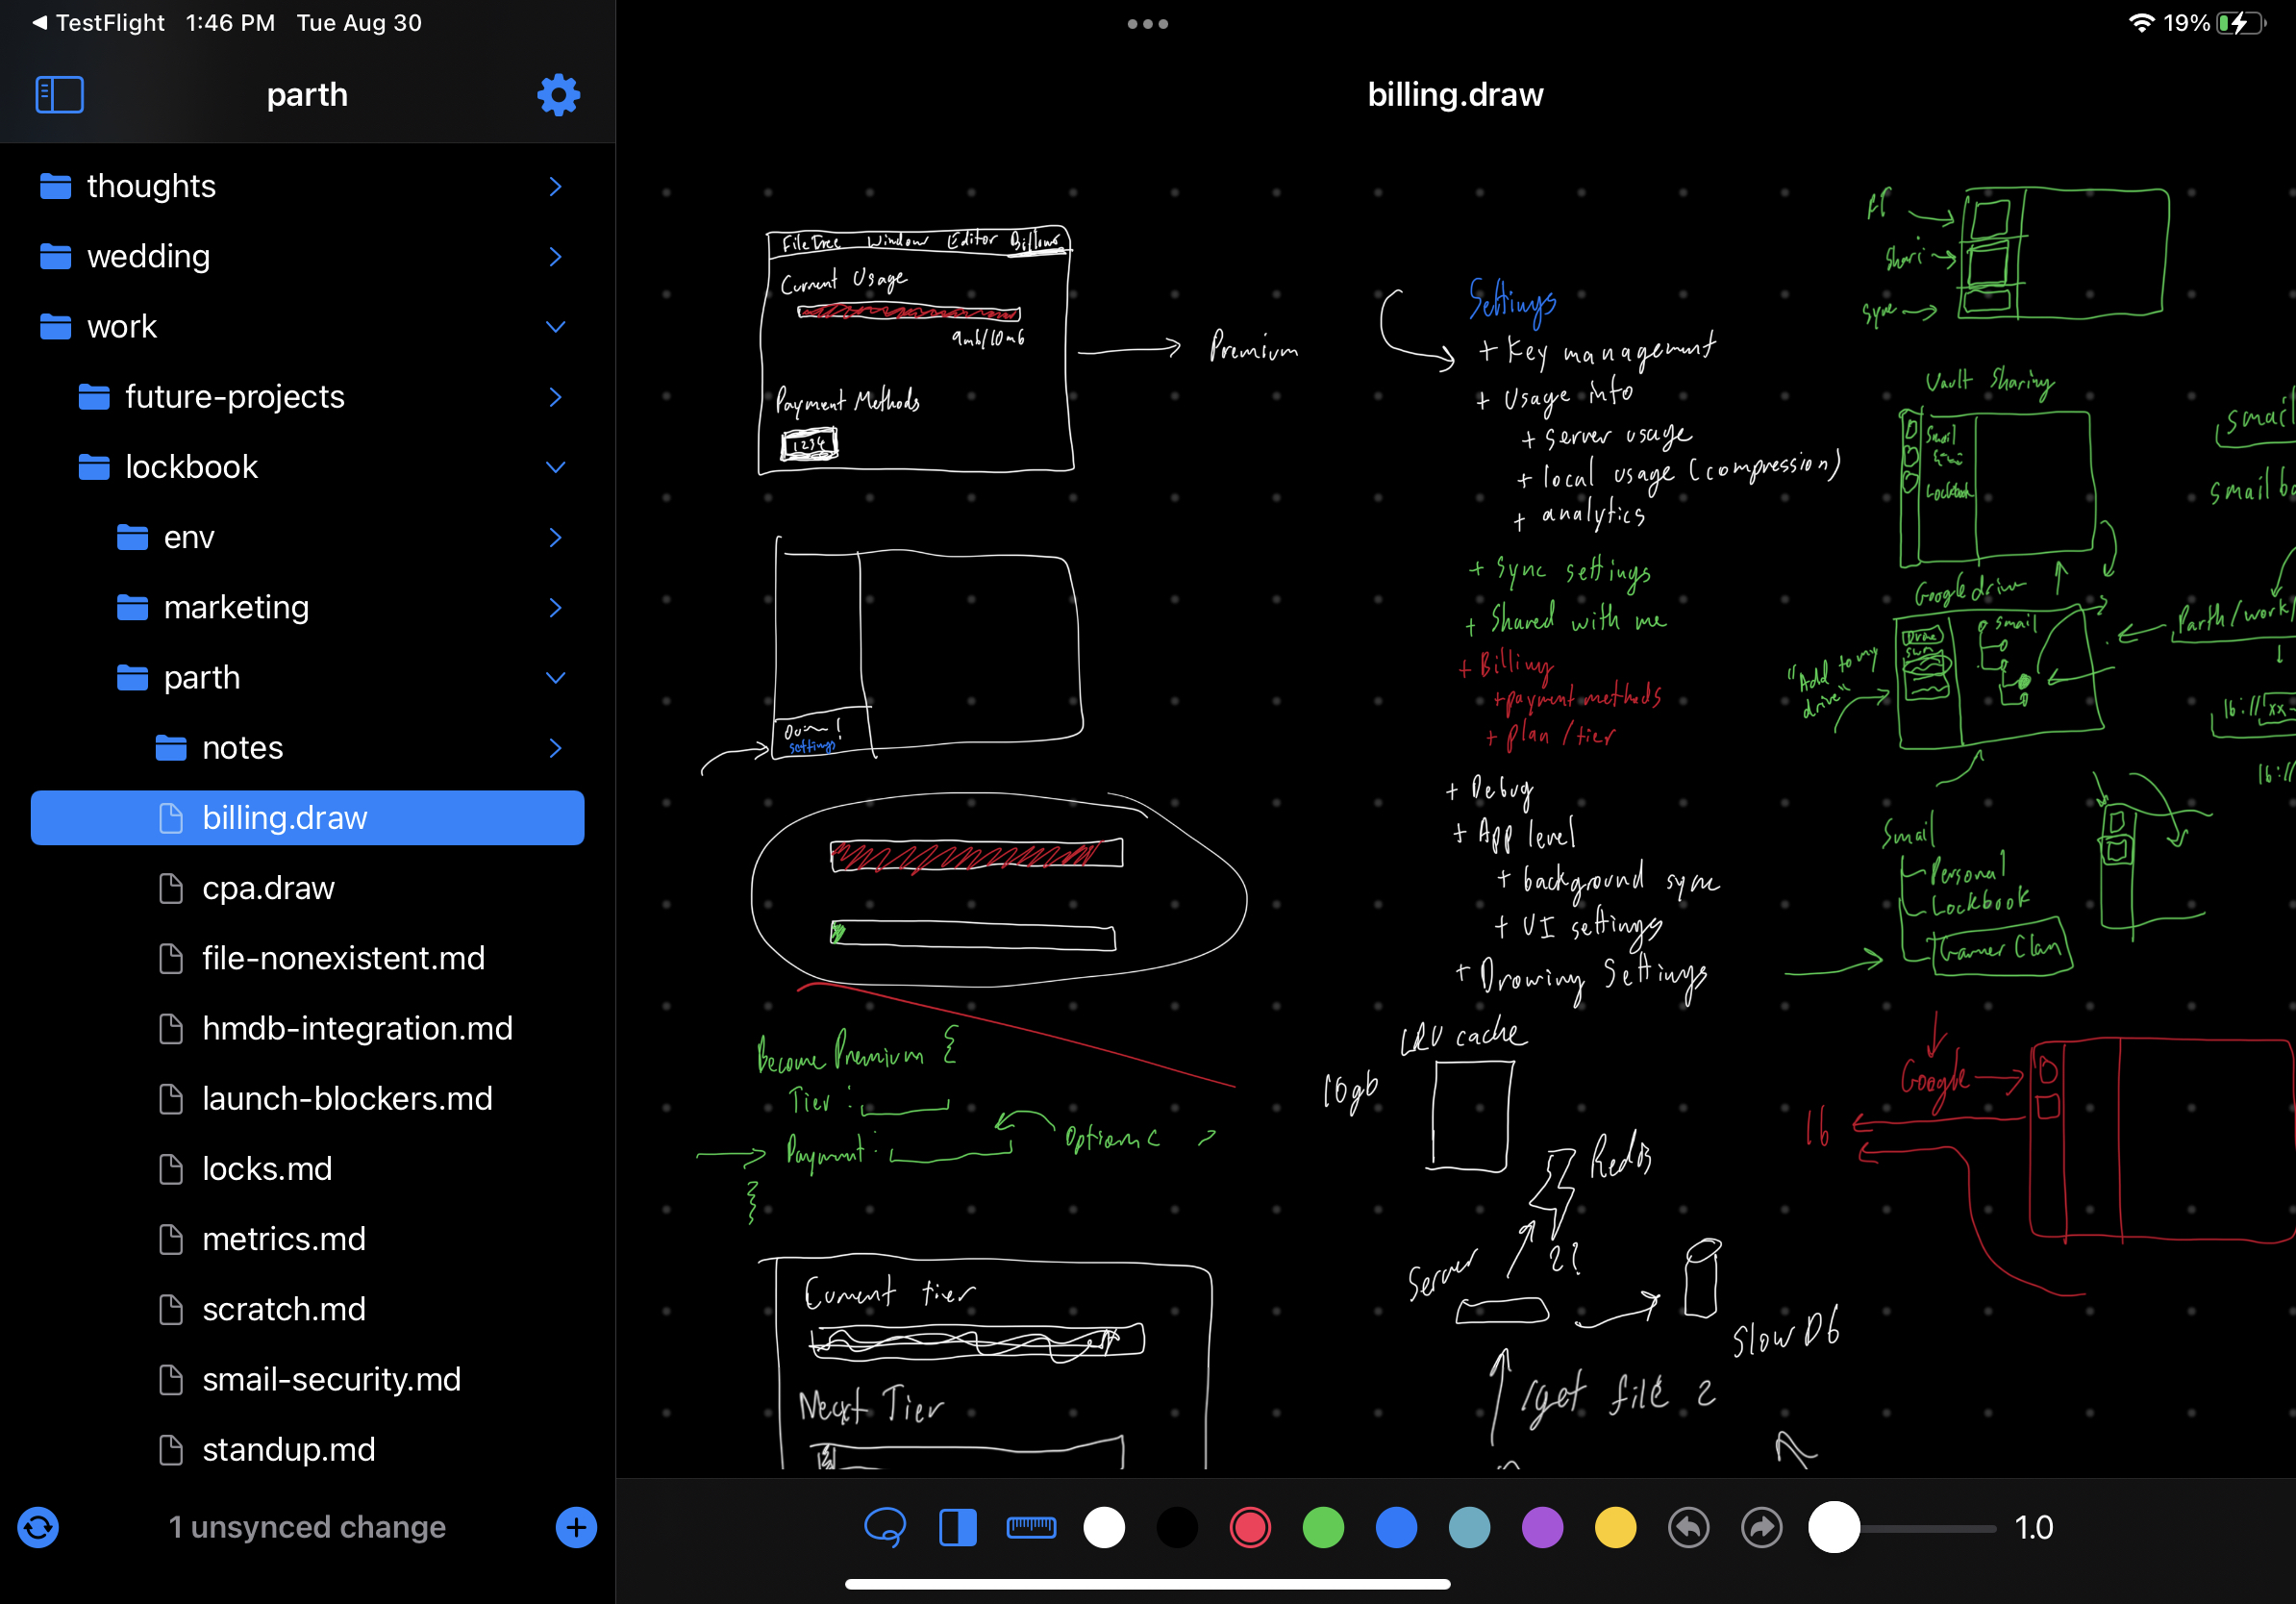 TestFlight 1:46 PM Tue Aug 30
19%
parth
thoughts
wedding
work
future-projects
lockbook
env
marketing
parth
notes
billing.draw
cpa.draw
file-nonexistent.md
hmdb-integration.md
launch-blockers.md
locks.md
metrics.md
scratch.md
smail-security.md
standup.md
1 unsynced change
billing.draw
File Tree Window Editor
Current Usage
9mb/10mb
Payment Methods
1234
Premium
settings
Become Premium {
Tier :
Payment :
}
Current tier
Next Tier
Settings
+ Key management
+ Usage info
+ server usage
+ local usage (compression)
+ analytics
+ Sync settings
+ Shared with me
+ Billing
+ payment methods
+ plan / tier
+ Debug
+ App level
+ background sync
+ UI settings
+ Drawing Settings
LRU cache
10gb
Redis
??
Server
Slow Db
/get file 2
FT
Shari
Sync
Vault Sharing
Smail
Lockbook
Google drive
smail
"Add to my
drive"
Parth/work/
lb://
lb://
smail
smail
Smail
Personal
Lockbook
Gamer Clan
Google
lb
1.0